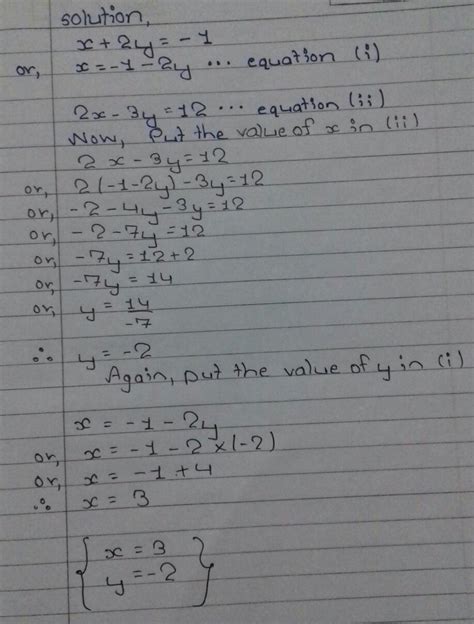 solution,
x + 2y = -1
or, x = -1 - 2y ... equation (i)
2x - 3y = 12 ... equation (ii)
Now, Put the value of x in (ii)
2x - 3y = 12
or, 2(-1-2y) - 3y = 12
or, -2 - 4y - 3y = 12
or, -2 - 7y = 12
or, -7y = 12 + 2
or, -7y = 14
or, y = 14/-7
∴ y = -2
Again, put the value of y in (i)
x = -1 - 2y
or, x = -1 - 2 × (-2)
or, x = -1 + 4
∴ x = 3
{ x = 3
y = -2 }